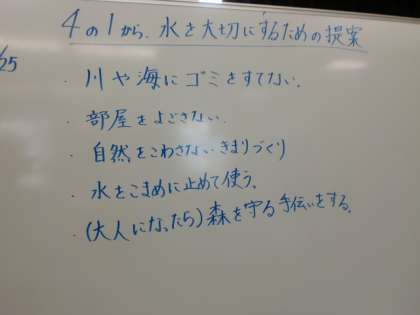 4の1から、水を大切にするための提案
/25
・川や海にゴミをすてない。
・部屋をよごさない。
・自然をこわさないきまりづくり
・水をこまめに止めて使う。
・(大人になったら)森を守る手伝いをする。